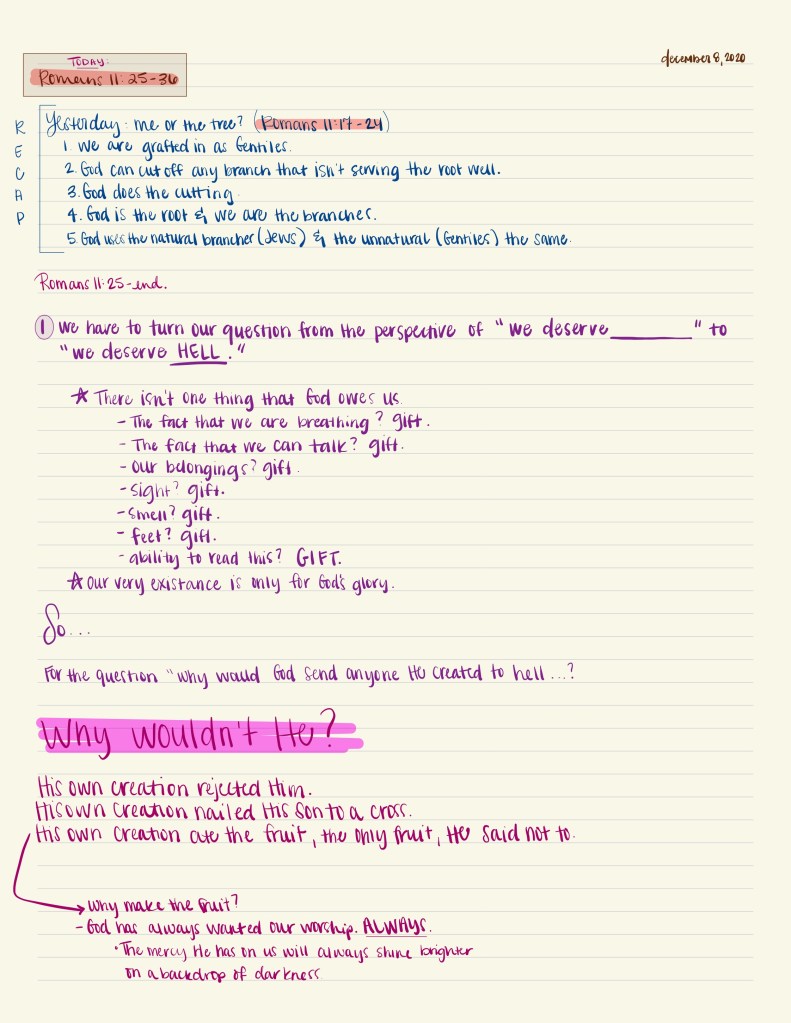 TODAY:
Romans 11:25-36
december 8, 2020
R
E
C
A
P
Yesterday: me or the tree? (Romans 11:17-24)
1. we are grafted in as Gentiles.
2. God can cut off any branch that isn't serving the root well.
3. God does the cutting.
4. God is the root & we are the branches.
5. God uses the natural branches (Jews) & the unnatural (Gentiles) the same.
Romans 11:25-end.
1 we have to turn our question from the perspective of "we deserve ________" to
"we deserve HELL."
☆ There isn't one thing that God owes us.
- The fact that we are breathing? gift.
- The fact that we can talk? gift.
- Our belongings? gift.
- sight? gift.
- smell? gift.
- feet? gift.
- ability to read this? GIFT.
☆ Our very existance is only for God's glory.
So...
For the question "why would God send anyone He created to hell...?
Why wouldn't He?
His own creation rejected Him.
His own creation nailed His Son to a cross.
His own creation ate the fruit, the only fruit, He said not to.
why make the fruit?
- God has always wanted our worship. ALWAYS.
• The mercy He has on us will always shine brighter
on a backdrop of darkness